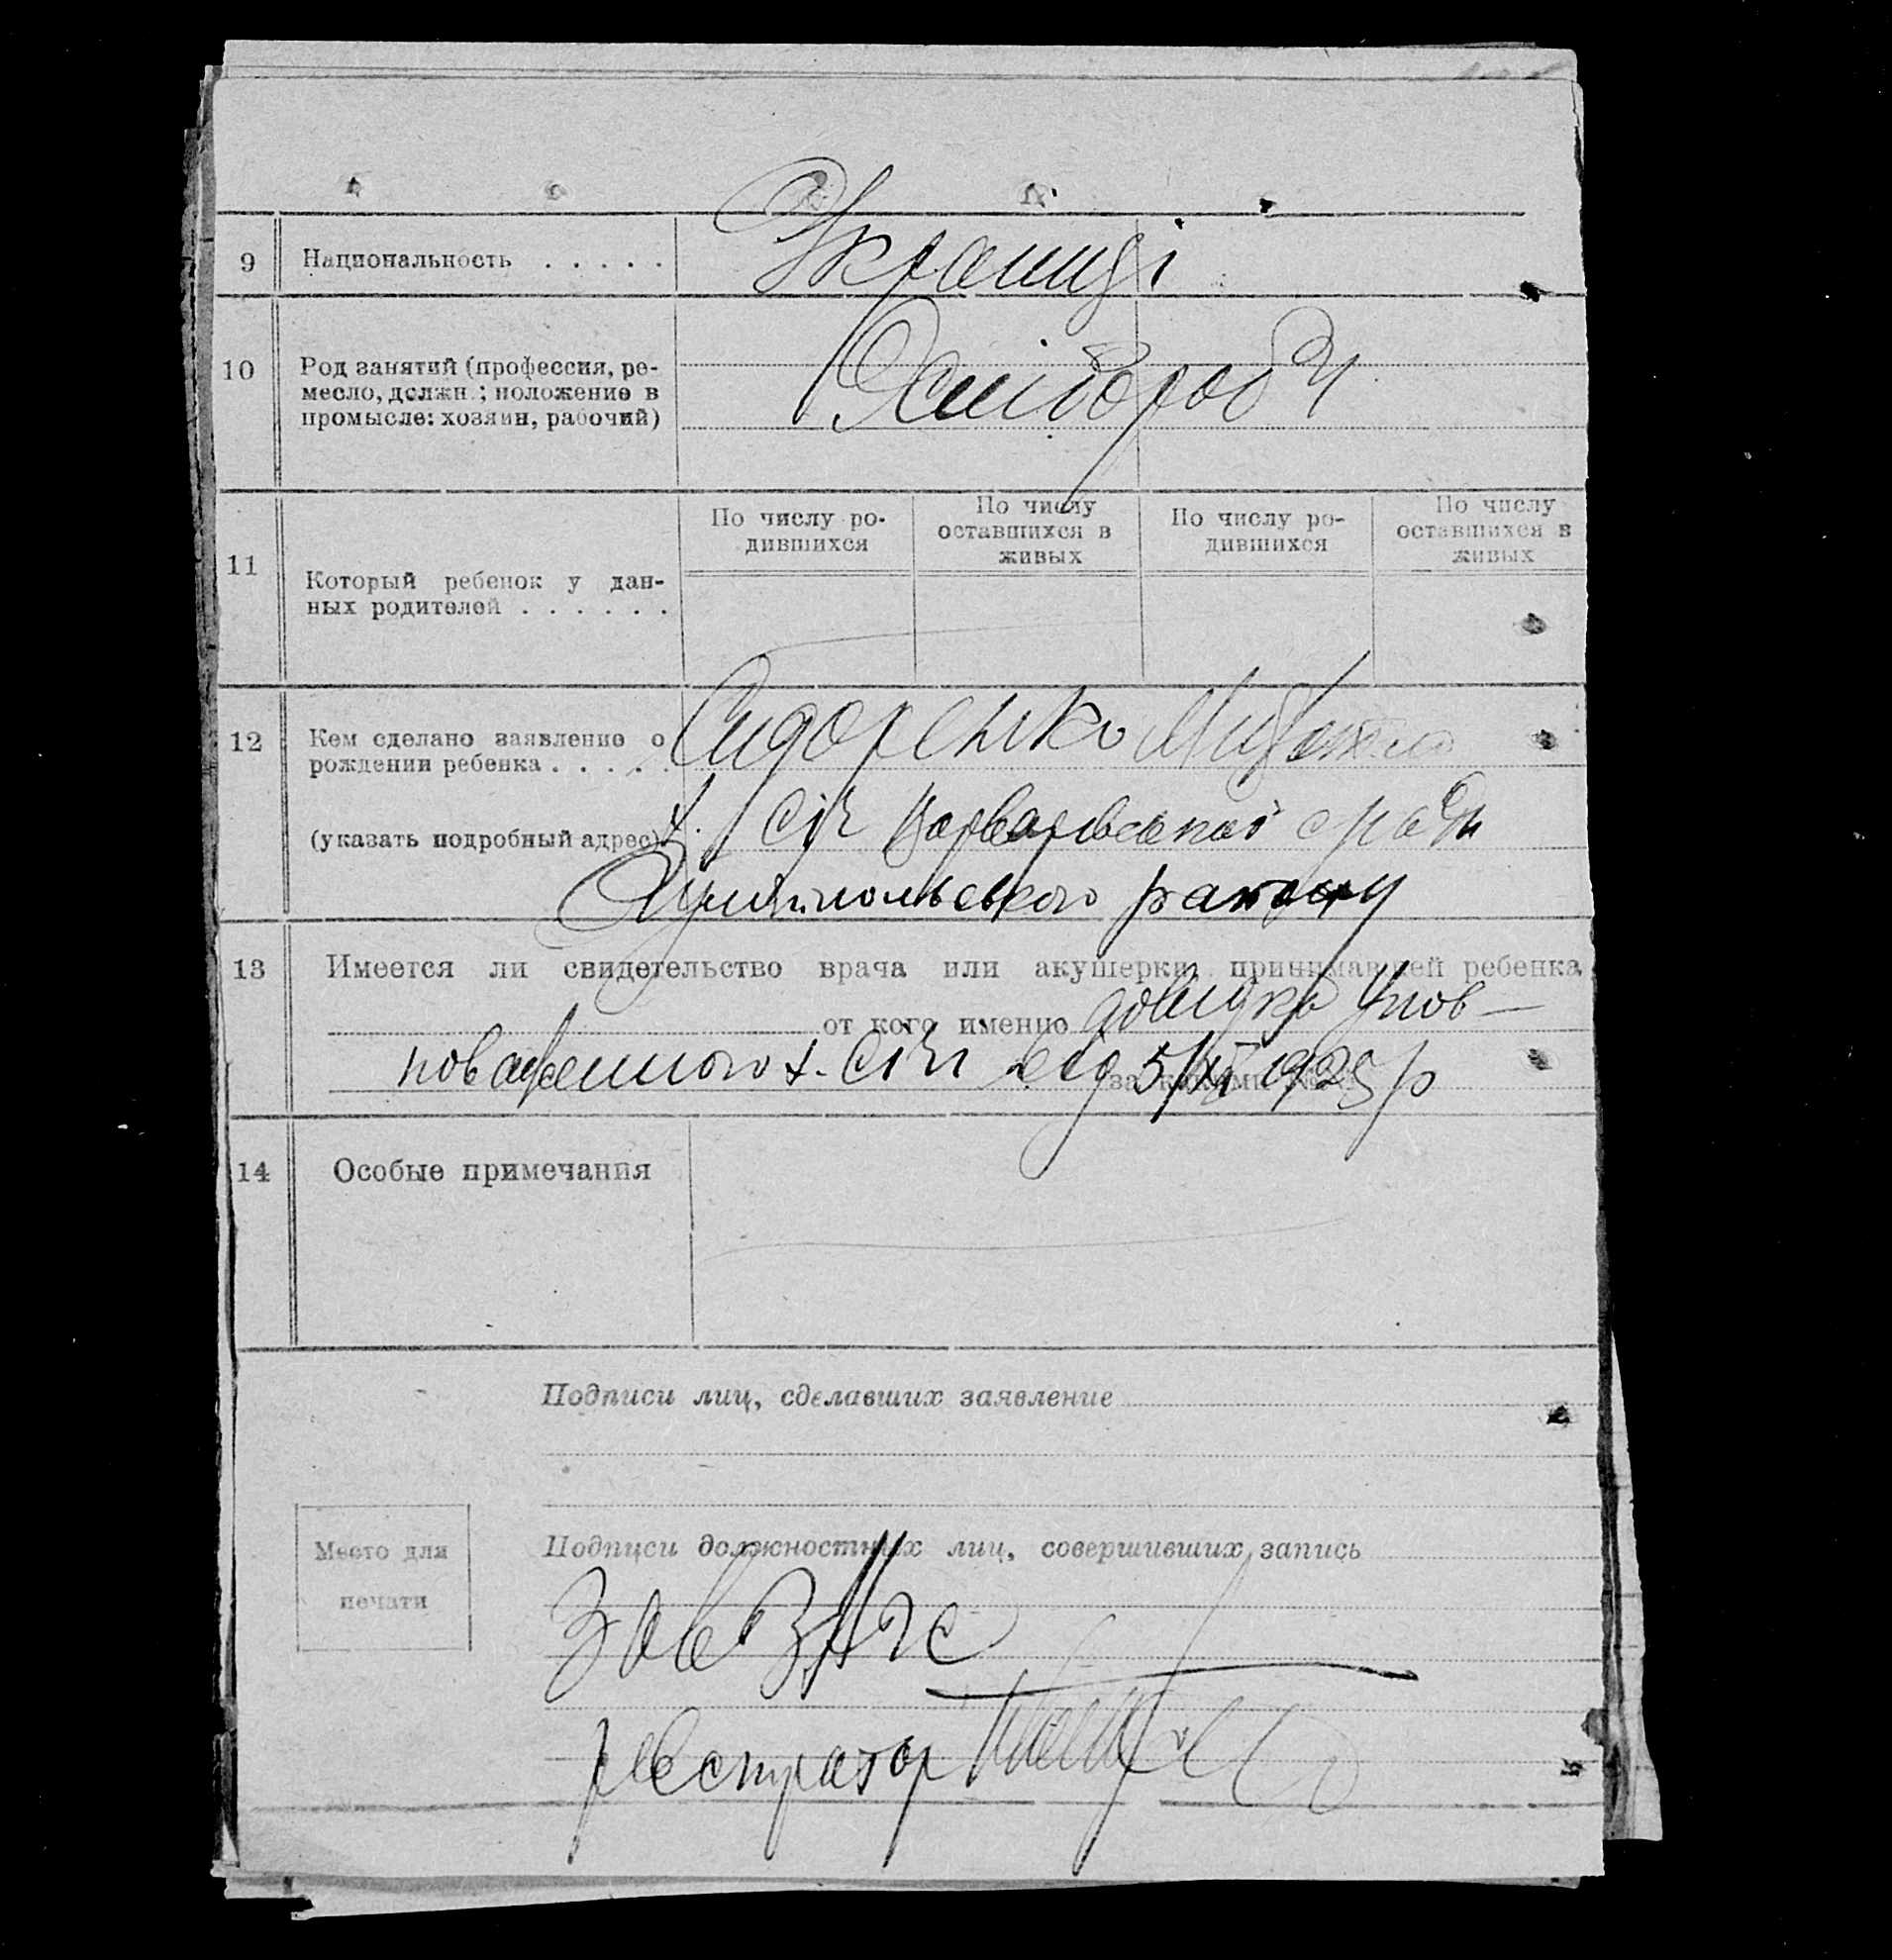 9 Национальность . . . . .
Українці
10 Род занятий (профессия, ре-
месло, должн.; положение в
промысле: хозяин, рабочий)
Хлібороби
11 Который ребенок у дан-
ных родителей . . . . . .
По числу ро-
дившихся
По числу
оставшихся в
живых
По числу ро-
дившихся
По числу
оставшихся в
живых
12 Кем сделано заявление о
рождении ребенка . . . . .
Сидоренко
(указать подробный адрес)
х. Січ Варварівської с/ради
району
13 Имеется ли свидетельство врача или акушерки, принимавшей ребенка
от кого именно довидка Упов-
новаженого х. Січі від 5/XI 1925 р
за какими №
14 Особые примечания
Подписи лиц, сделавших заявление
Место для
печати
Подписи должностных лиц, совершивших запись
Зав ЗАГС
реєстратор